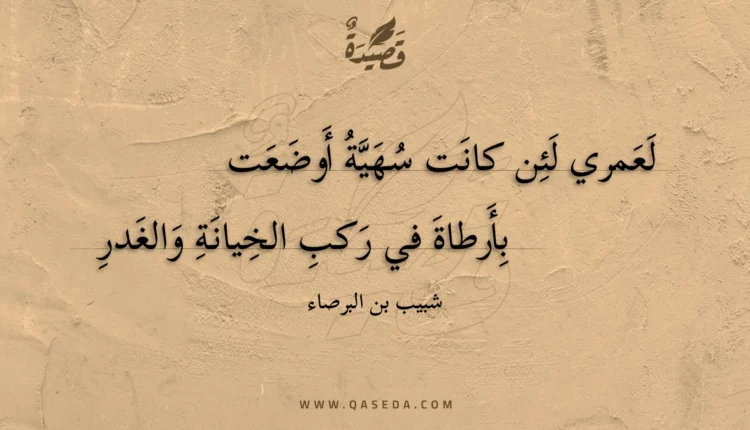 قَصِيْدَةٌ
لَعَمري لَئِن كانَت سُهَيَّةُ أَوضَعَت
بِأَرطاةَ في رَكبِ الخِيانَةِ وَالغَدرِ
شبيب بن البرصاء
WWW.QASEDA.COM